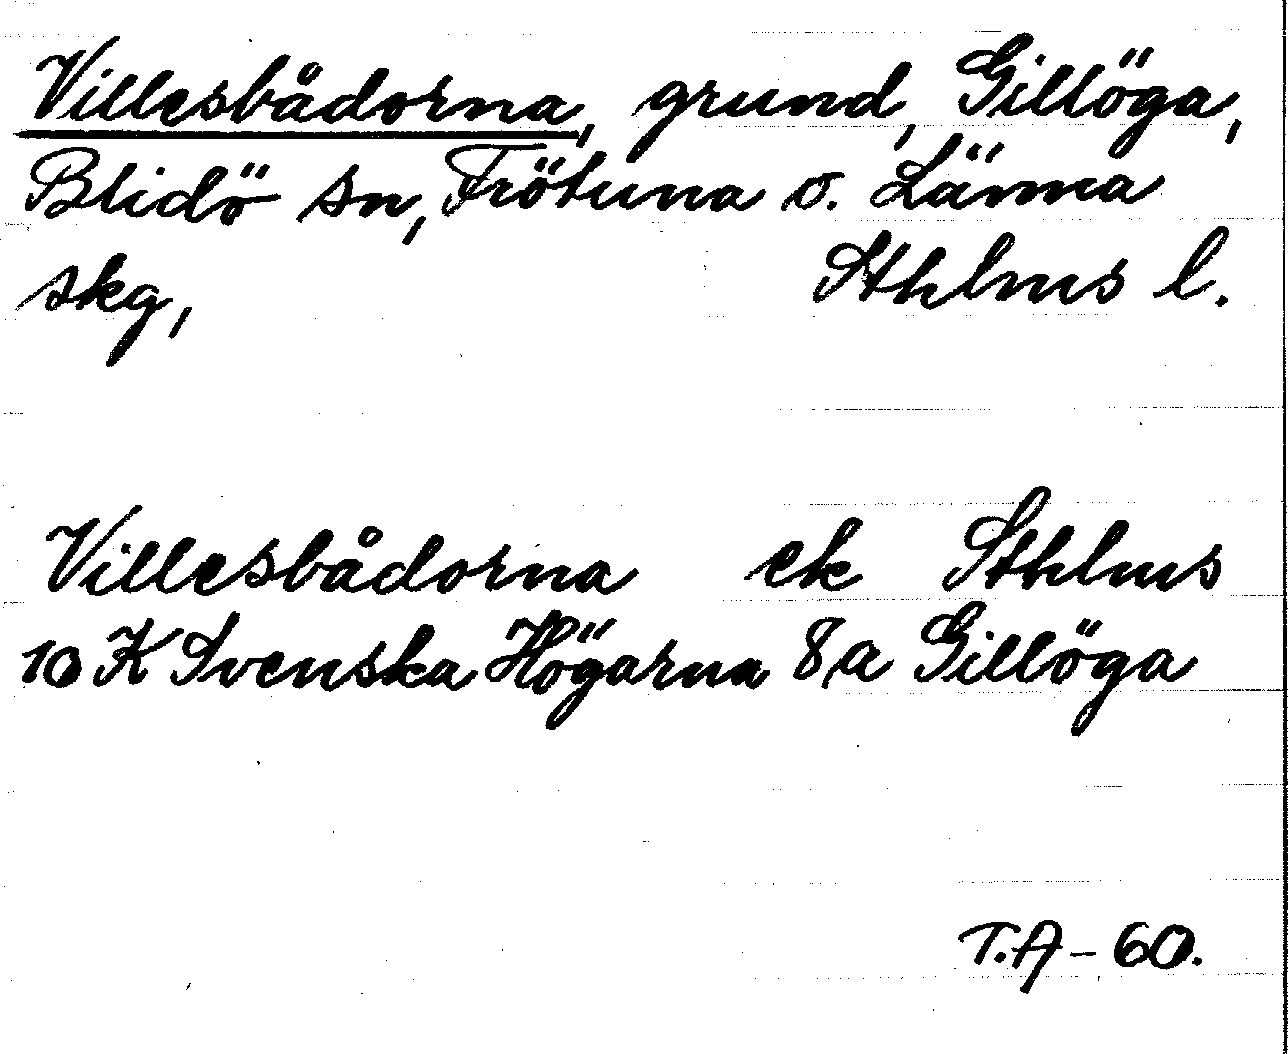 Villesbådorna, grund, Gillöga,
Blidö sn, Frötuna o. Länna
skg, Sthlms l.
Villesbådorna ek Sthlms
10 K Svenska Högarna 8a Gillöga
T.A-60.